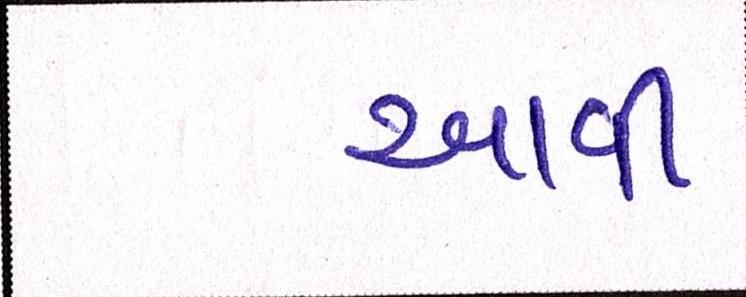 આવી